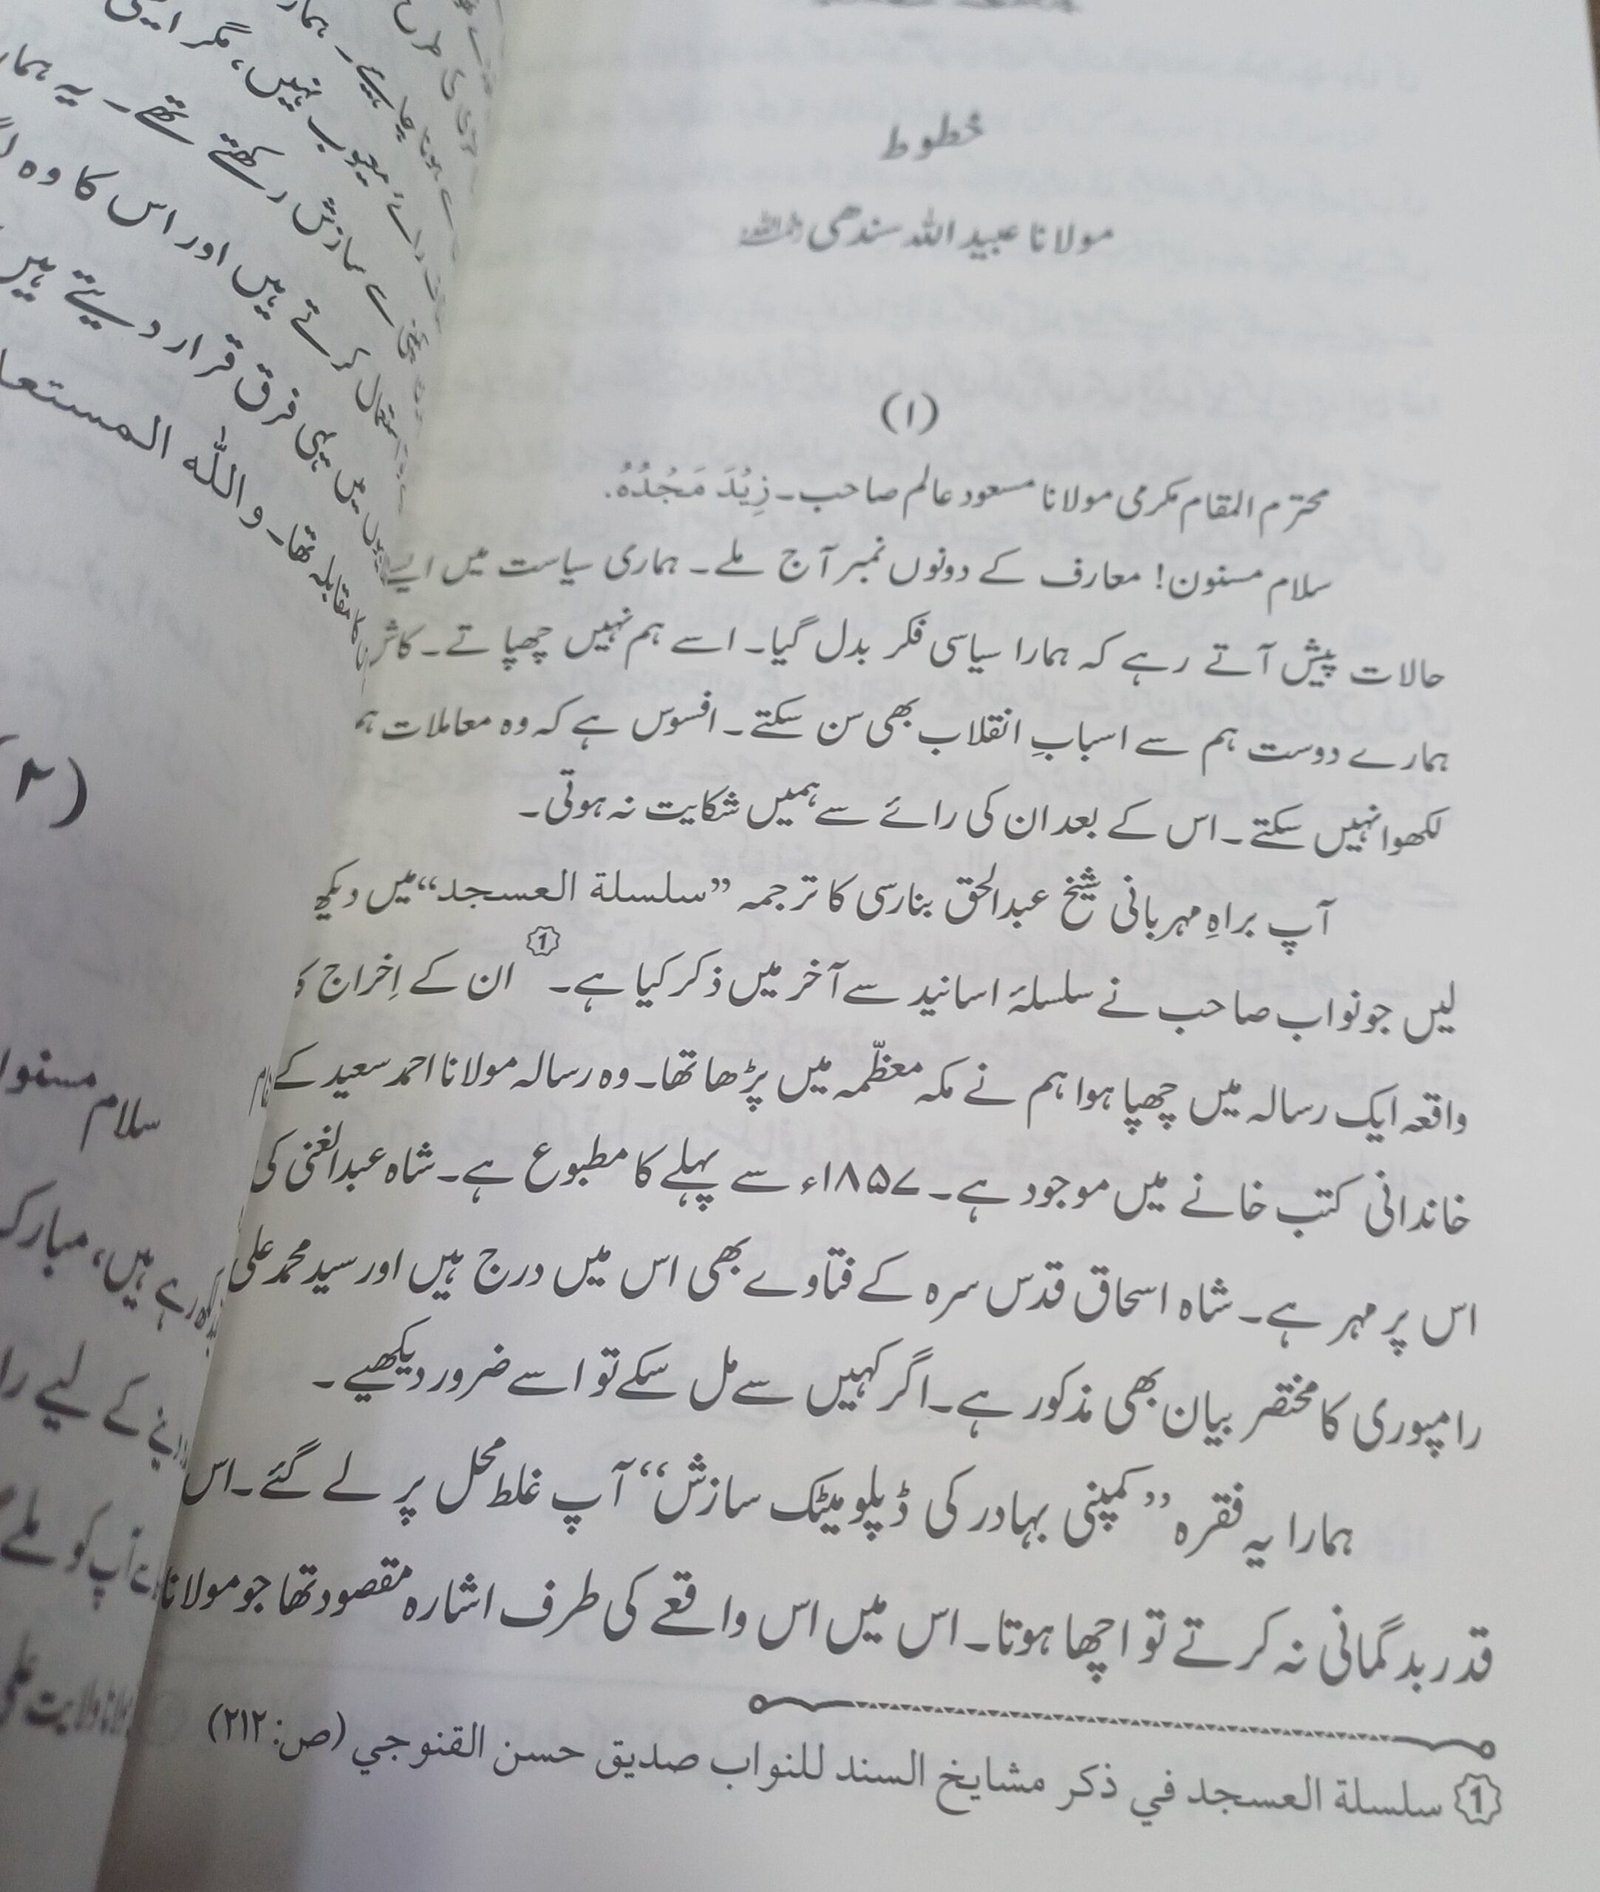 خطوط
مولانا عبید اللہ سندھی رحمہ اللہ
(۱)
محترم المقام مکرمی مولانا مسعود عالم صاحب۔ زِیْدَ مَجْدُہُ.
سلام مسنون! معارف کے دونوں نمبر آج ملے۔ ہماری سیاست میں ایسے
حالات پیش آتے رہے کہ ہمارا سیاسی فکر بدل گیا۔ اسے ہم نہیں چھپاتے۔ کاش
ہمارے دوست ہم سے اسبابِ انقلاب بھی سن سکتے۔ افسوس ہے کہ وہ معاملات ہم
لکھوا نہیں سکتے۔ اس کے بعد ان کی رائے سے ہمیں شکایت نہ ہوتی۔
آپ براہِ مہربانی شیخ عبدالحق بنارسی کا ترجمہ ”سلسلة العسجد“ میں دیکھ
لیں جو نواب صاحب نے سلسلۂ اسانید سے آخر میں ذکر کیا ہے۔ 1 ان کے اِخراج کا
واقعہ ایک رسالہ میں چھپا ہوا ہم نے مکہ معظّمہ میں پڑھا تھا۔ وہ رسالہ مولانا احمد سعید کے
خاندانی کتب خانے میں موجود ہے۔ ۱۸۵۷ء سے پہلے کا مطبوع ہے۔ شاہ عبدالغنی کی
اس پر مہر ہے۔ شاہ اسحاق قدس سرہ کے فتاوے بھی اس میں درج ہیں اور سید محمد علی
رامپوری کا مختصر بیان بھی مذکور ہے۔ اگر کہیں سے مل سکے تو اسے ضرور دیکھیے۔
ہمارا یہ فقرہ ”کمپنی بہادر کی ڈپلومیٹک سازش“ آپ غلط محل پر لے گئے۔ اس
قدر بدگمانی نہ کرتے تو اچھا ہوتا۔ اس میں اس واقعے کی طرف اشارہ مقصود تھا جو مولانا
1 سلسلة العسجد في ذكر مشايخ السند للنواب صديق حسن القنوجي (ص: ۲۱۲)
معیوب نہیں، مگر
سازش رکھتے تھے۔ یہ
کرتے ہیں اور اس کا وہ
میں ہی فرق قرار دیتے ہیں
کا مقابلہ تھا۔ واللہ
(۲
سلام
رہے ہیں،
کے لیے
آپ کو ملے